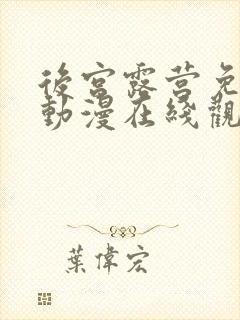 後宮露营免
動漫在綫觀
葉偉宏